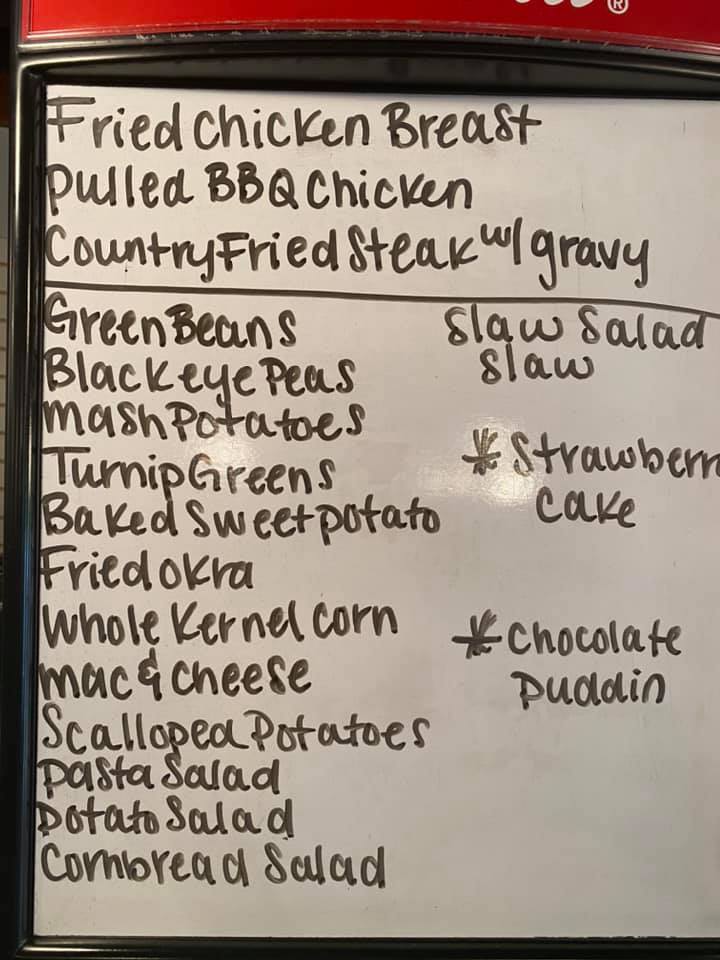 Fried chicken Breast
Pulled BBQ Chicken
Country Fried Steak w/ gravy
Green Beans
Black eye Peas
mash Potatoes
Turnip Greens
Baked Sweet potato
Fried okra
Whole Kernel corn
mac & cheese
Scalloped Potatoes
pasta Salad
potato Salad
Cornbread Salad
Slaw Salad
Slaw
* Strawberr
cake
* Chocolate
puddin
®